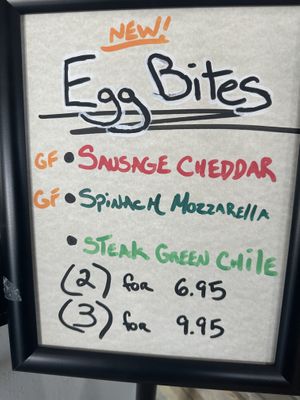 NEW!
Egg Bites
GF • SAUSAGE CHEDDAR
GF • SPINACH MOZZARELLA
• STEAK GREEN CHILE
(2) for 6.95
(3) for 9.95